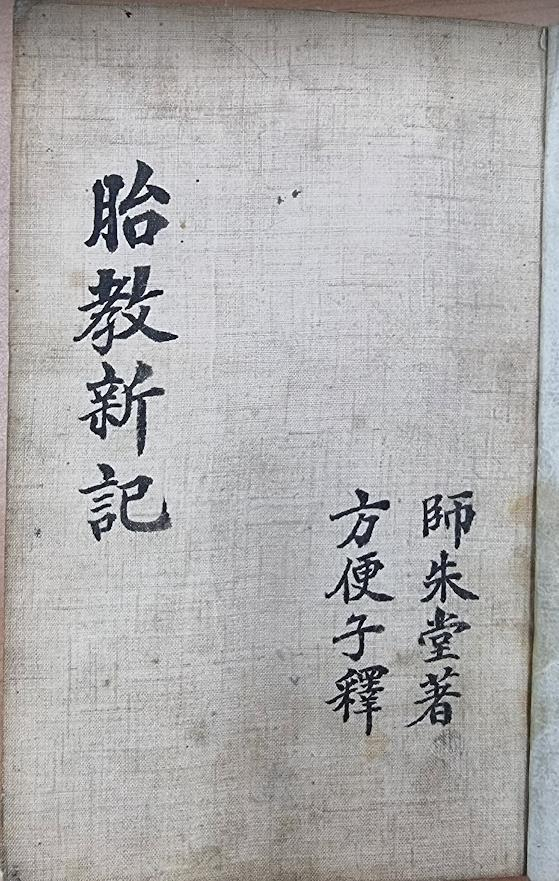 師朱堂著
方便子釋
胎教新記